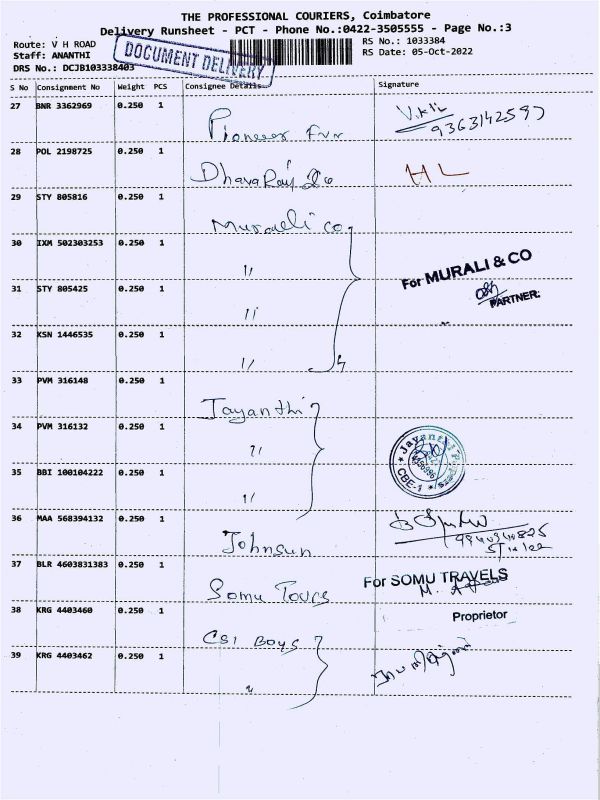 THE PROFESSIONAL COURIERS, Coimbatore
Delivery Runsheet - PCT - Phone No.:0422-3505555 - Page No.:3
Route: V H ROAD
RS No.: 1033384
Staff: ANANTHI
RS Date: 05-Oct-2022
DRS No.: DCJB103338403
DOCUMENT DELIVERY
S No Consignment No Weight PCS Consignee Details Signature
27 BNR 3362969 0.250 1 Pioneer
28 POL 2198725 0.250 1 DhavaRaj
29 STY 805816 0.250 1 Muraeli Co
30 IXM 502303253 0.250 1 "
For MURALI & CO
31 STY 805425 0.250 1 "
PARTNER.
32 KSN 1446535 0.250 1 "
33 PVM 316148 0.250 1 Jayanthi
34 PVM 316132 0.250 1 "
35 BBI 100104222 0.250 1 "
CBE-1
36 MAA 568394132 0.250 1 Johnsun
37 BLR 4603831383 0.250 1 Somu Tours
For SOMU TRAVELS
38 KRG 4403460 0.250 1 CSI Boys
Proprietor
39 KRG 4403462 0.250 1 "